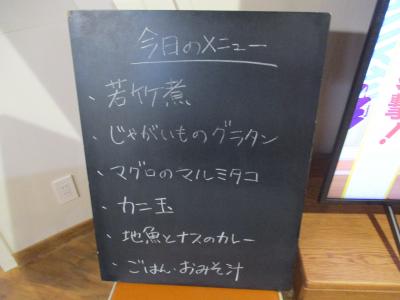 今日のメニュー
、若竹煮
、じゃがいものグラタン
、マグロのマルミタコ
、カニ玉
、地魚とナスのカレー
、ごはん・おみそ汁